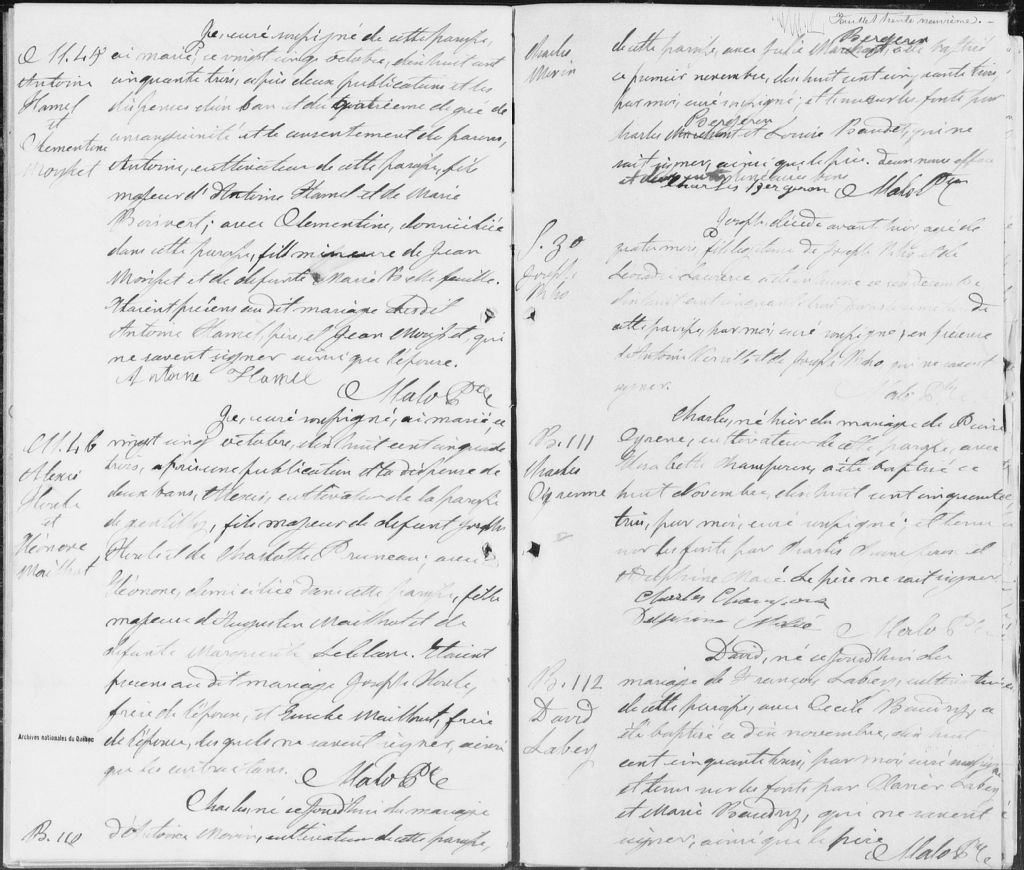 M.45
Antoine
Hamel
et
Clementine
Morisset
Je, curé soussigné de cette paroisse,
ai marié, ce vingt cinq octobre, dix huit cent
cinquante trois, après deux publications et les
dispenses d'un ban et du quatrième degré de
consanguinité et le consentement des parens,
Antoine, cultivateur de cette paroisse, fils
majeur d'Antoine Hamel et de Marie
Boisvert; avec Clementine, domiciliée
dans cette paroisse, fille mineure de Jean
Morisset et de défunte Marie Belle feuille.
Etaient présens au dit mariage
Antoine Hamel, père, et Jean Morisset, qui
ne savent signer ainsi que l'épouse.
Antoine Hamel
Malo Ptre
M.46
Alexis
Houle
et
Eléonore
Mailhot
Je, curé soussigné, ai marié, ce
vingt cinq octobre, dix huit cent cinquante
trois, après une publication et la dispense de
deux bans, Alexis, cultivateur de la paroisse
de Gentilly, fils majeur de défunt Joseph
Houle et de Charlotte Bruneau; avec
Eléonore, domiciliée dans cette paroisse, fille
majeure d'Augustin Mailhot et de
défunte Marguerite Leblanc. Etaient
présens au dit mariage Joseph Houle,
frère de l'époux, et Mailhot, frère
de l'épouse, lesquels ne savent signer, ainsi
que les contractans.
Malo Ptre
Archives nationales du Québec
B.110
Charles, né ce jourd'hui du mariage
d'Antoine Morin, cultivateur de cette paroisse,
Feuillet trente neuvième.
Charles
Morin
Bergeron
de cette paroisse, avec Julie, a été baptisé
ce premier novembre, dix huit cent cinquante trois,
par moi, curé soussigné; et tenu sur les fonts par
Bergeron
Charles et Louise Baudet, qui ne
sait signer, ainsi que le père. Deux mots
Charles Bergeron
Malo Ptre
S.30
Joseph
Joseph, décédé avant hier, agé de
quatre mois, fils légitime de Joseph et de
cette paroisse, par moi, curé soussigné, en présence
d'Antoine et de Joseph qui ne savent
signer.
Malo Ptre
B.111
Charles
Cyrenne
Charles, né hier du mariage de Pierre
Cyrenne, cultivateur de cette paroisse, avec
Elisabeth, a été baptisé ce
huit Novembre, dix huit cent cinquante
trois, par moi, curé soussigné; et tenu
sur les fonts par Charles et
Delphine. Le père ne sait signer
Charles
Malo Ptre
B.112
David
Labey
David, né ce jourd'hui du
mariage de François Labey, cultivateur
de cette paroisse, avec Cecile Beaudry, a
été baptisé ce dix novembre, dix huit
cent cinquante trois, par moi curé soussigné
et tenu sur les fonts par Xavier Labey
et Marie Beaudry, qui ne savent
signer, ainsi que le père
Malo Ptre